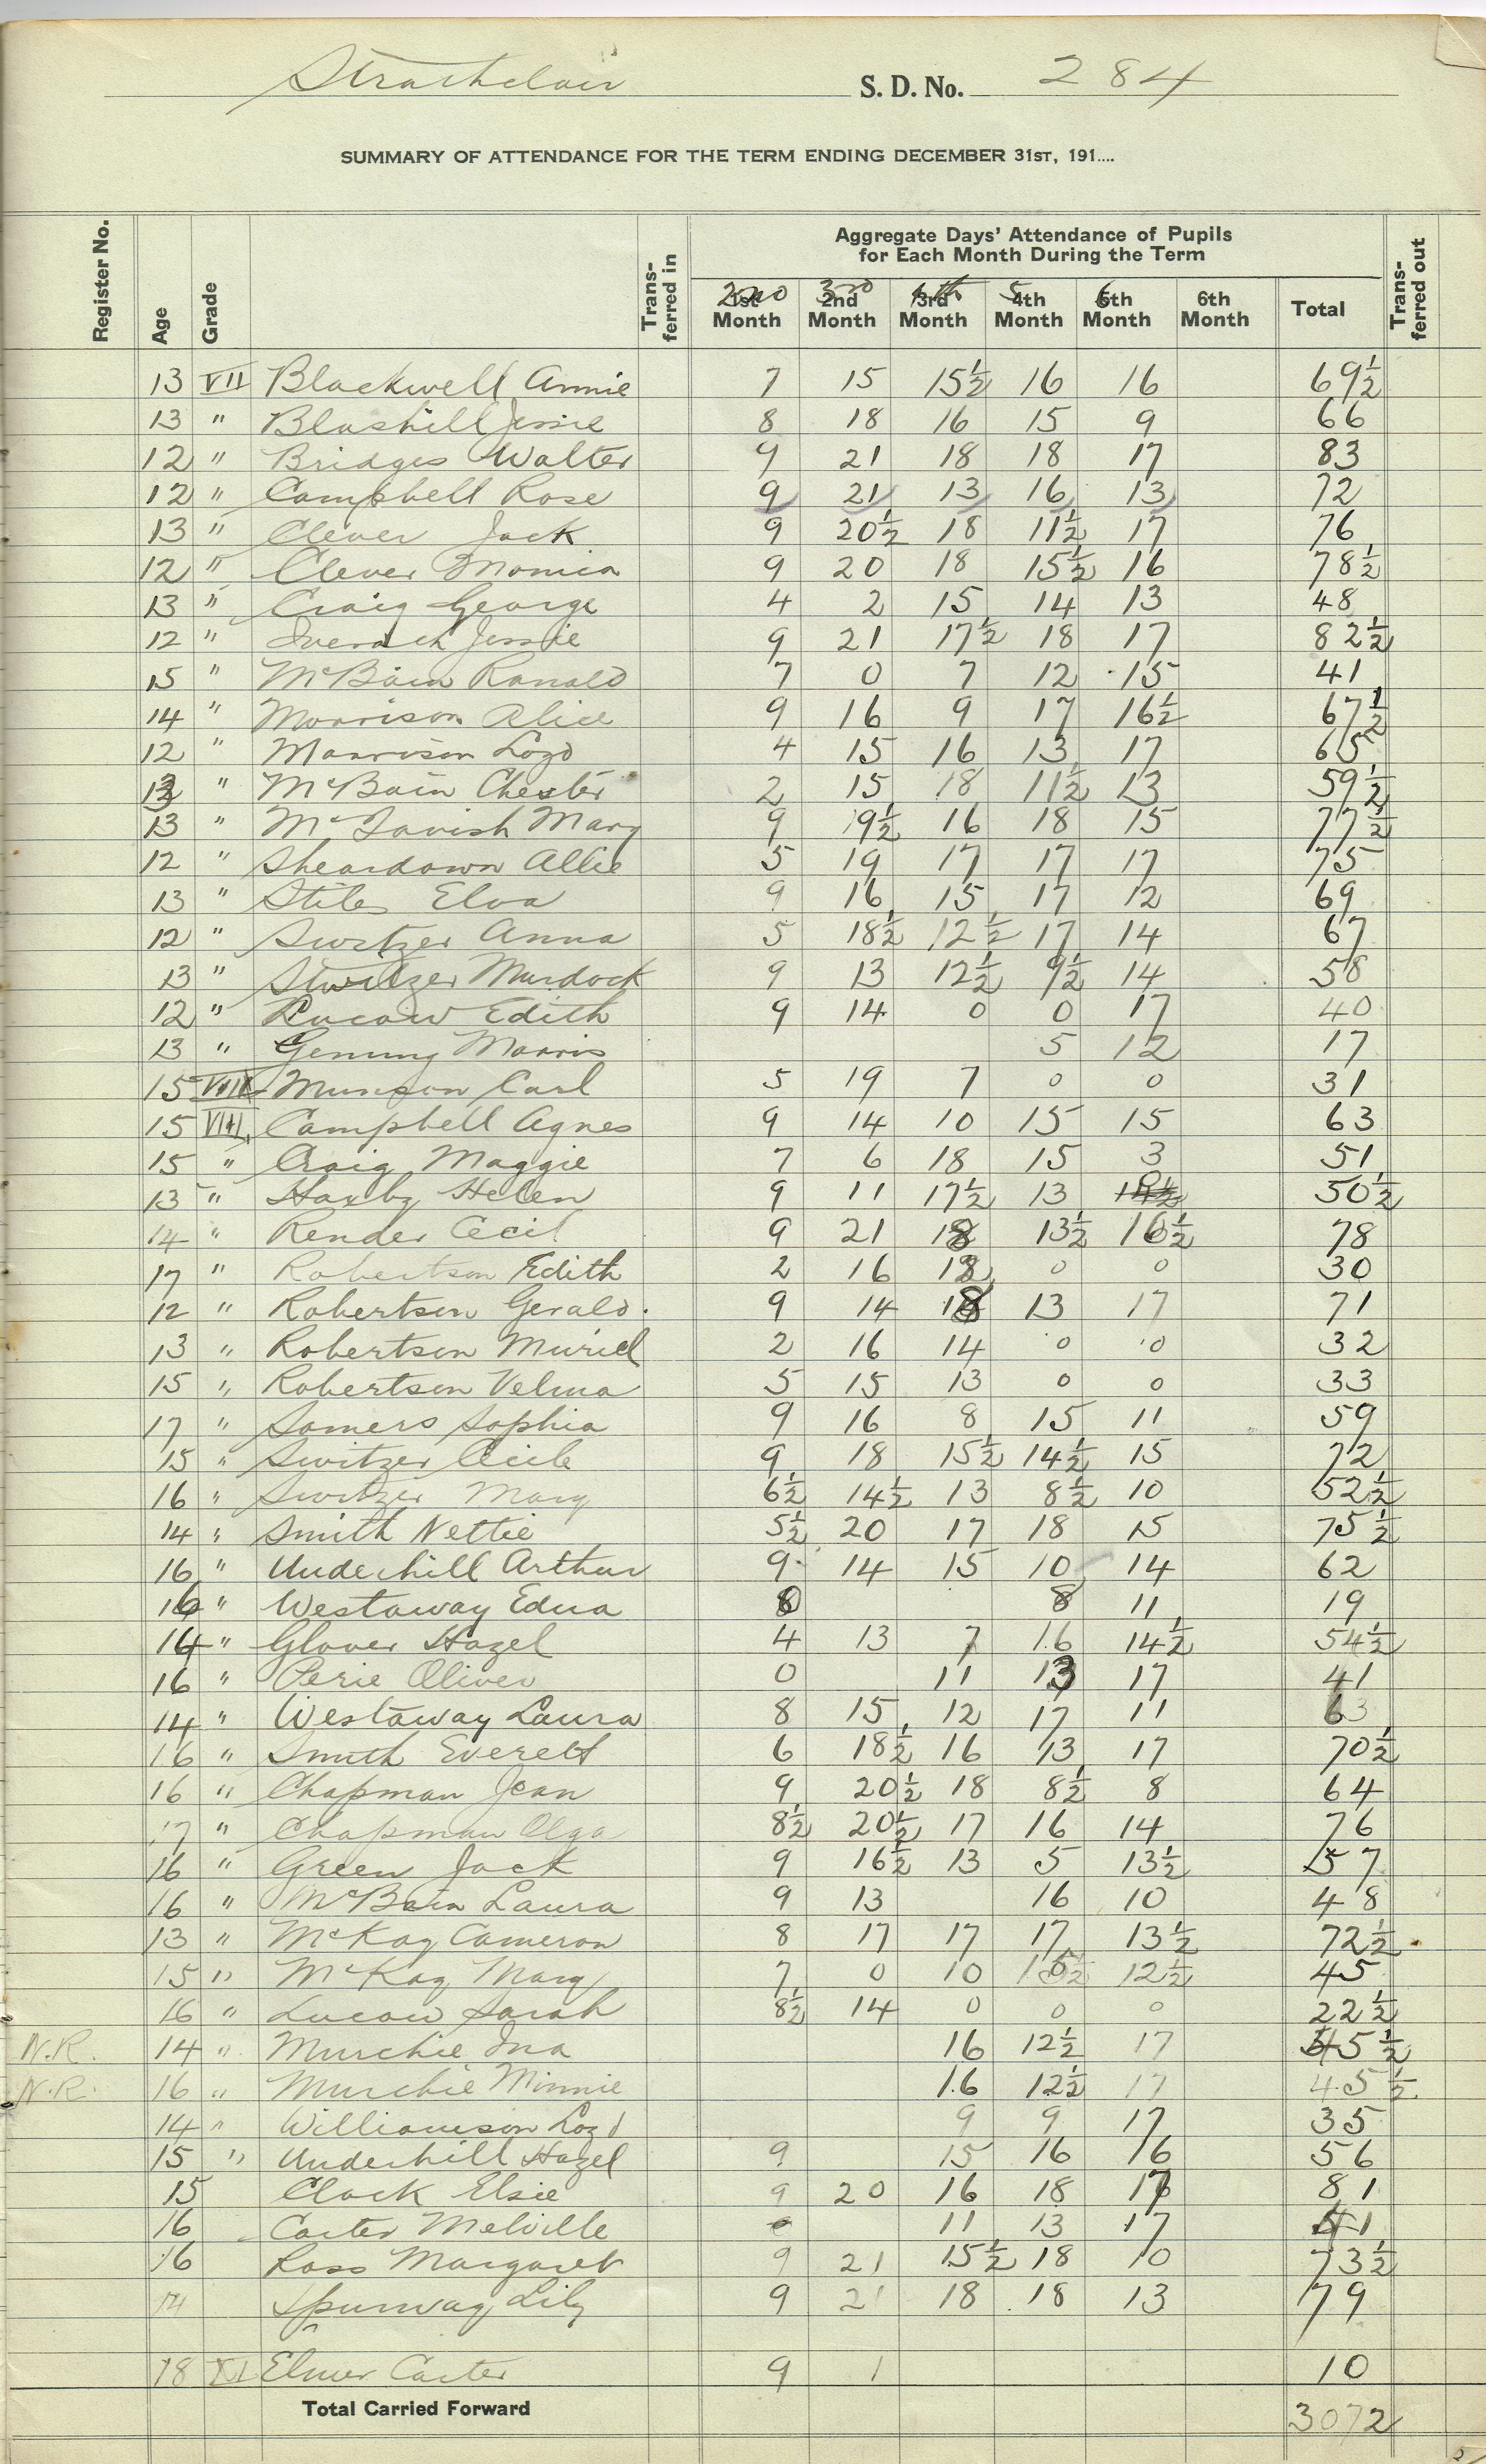 Strathclair S. D. No. 284
SUMMARY OF ATTENDANCE FOR THE TERM ENDING DECEMBER 31ST, 191....
Register No. Age Grade Trans-ferred in Aggregate Days' Attendance of Pupils for Each Month During the Term Trans-ferred out
2nd 3rd 4th 5 6
1st Month 2nd Month 3rd Month 4th Month 5th Month 6th Month Total
13 VII Blackwell Annie 7 15 15½ 16 16 69½
13 " Blashill Jessie 8 18 16 15 9 66
12 " Bridges Walter 9 21 18 18 17 83
12 " Campbell Rose 9 21 13 16 13 72
13 " Clever Jack 9 20½ 18 11½ 17 76
12 " Clever Monica 9 20 18 15½ 16 78½
13 " Craig George 4 2 15 14 13 48
12 " Iverach Jessie 9 21 17½ 18 17 82½
15 " McBain Ranald 7 0 7 12 15 41
14 " Morrison Alice 9 16 9 17 16½ 67½
12 " Morrison Loyd 4 15 16 13 17 65
13 " McBain Chester 2 15 18 11½ 13 59½
13 " McTavish Mary 9 19½ 16 18 15 77½
12 " Sheardown Allie 5 19 17 17 17 75
13 " Stiles Elva 9 16 15 17 12 69
12 " Switzer Anna 5 18½ 12½ 17 14 67
13 " Switzer Murdock 9 13 12½ 9½ 14 58
12 " Lucow Edith 9 14 0 0 17 40
13 " Genung Morris 5 12 17
15 VIII Munson Carl 5 19 7 0 0 31
15 VIII Campbell Agnes 9 14 10 15 15 63
15 " Craig Maggie 7 6 18 15 3 51
13 " Haxby Helen 9 11 17½ 13 50½
14 " Render Cecil 9 21 18 13½ 16½ 78
17 " Robertson Edith 2 16 12 0 0 30
12 " Robertson Gerald. 9 14 18 13 17 71
13 " Robertson Muriel 2 16 14 0 0 32
15 " Robertson Velma 5 15 13 0 0 33
17 " Somers Sophia 9 16 8 15 11 59
15 " Switzer Cecile 9 18 15½ 14½ 15 72
16 " Switzer Mary 6½ 14½ 13 8½ 10 52½
14 " Smith Nettie 5½ 20 17 18 15 75½
16 " Underhill Arthur 9 14 15 10 14 62
16 " Westaway Edna 0 8 11 19
14 " Glover Hazel 4 13 7 16 14½ 54½
16 " Perie Oliver 0 11 13 17 41
14 " Westaway Laura 8 15 12 17 11 63
16 " Smith Everett 6 18½ 16 13 17 70½
16 " Chapman Jean 9 20½ 18 8½ 8 64
17 " Chapman Olga 8½ 20½ 17 16 14 76
16 " Green Jack 9 16½ 13 5 13½ 57
16 " McBain Laura 9 13 16 10 48
13 " McKay Cameron 8 17 17 17 13½ 72½
15 " McKay Mary 7 0 10 15½ 12½ 45
16 " Lucow Sarah 8½ 14 0 0 0 22½
N.R. 14 " Murchie Ina 16 12½ 17 45½
N.R. 16 " Murchie Minnie 16 12½ 17 45½
14 " Williamson Loyd 9 9 17 35
15 " Underhill Hazel 9 15 16 16 56
15 Clack Elsie 9 20 16 18 81
16 Carter Melville 11 13 17 41
16 Ross Margaret 9 21 15½ 18 10 73½
14 Spurway Lily 9 21 18 18 13 79
18 XI Elmer Carter 9 1 10
Total Carried Forward 3072